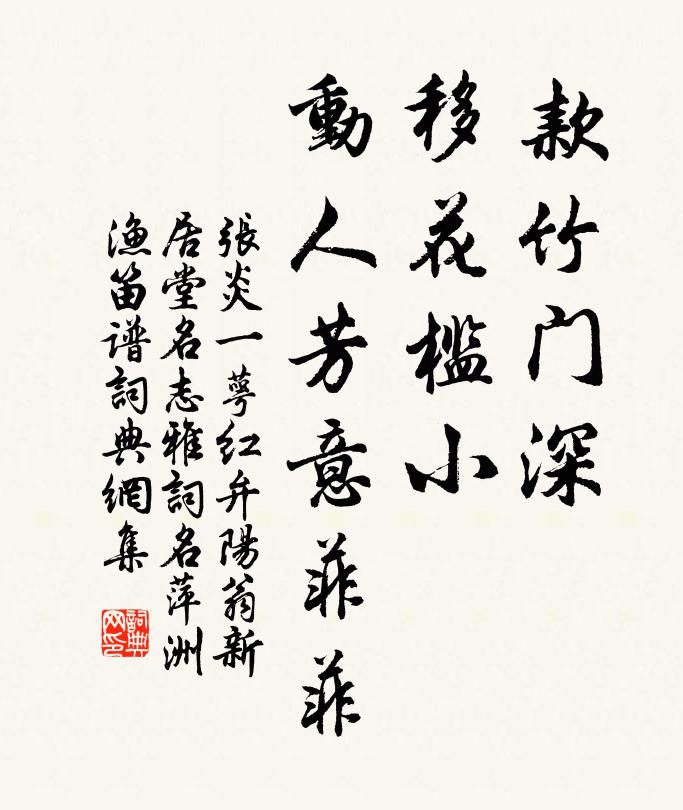 款竹门深
移花檻小
動人芳意菲菲
張炎一萼红弁陽翁新
居堂名志雅詞名萍洲
漁笛谱詞典網集
詞典网印